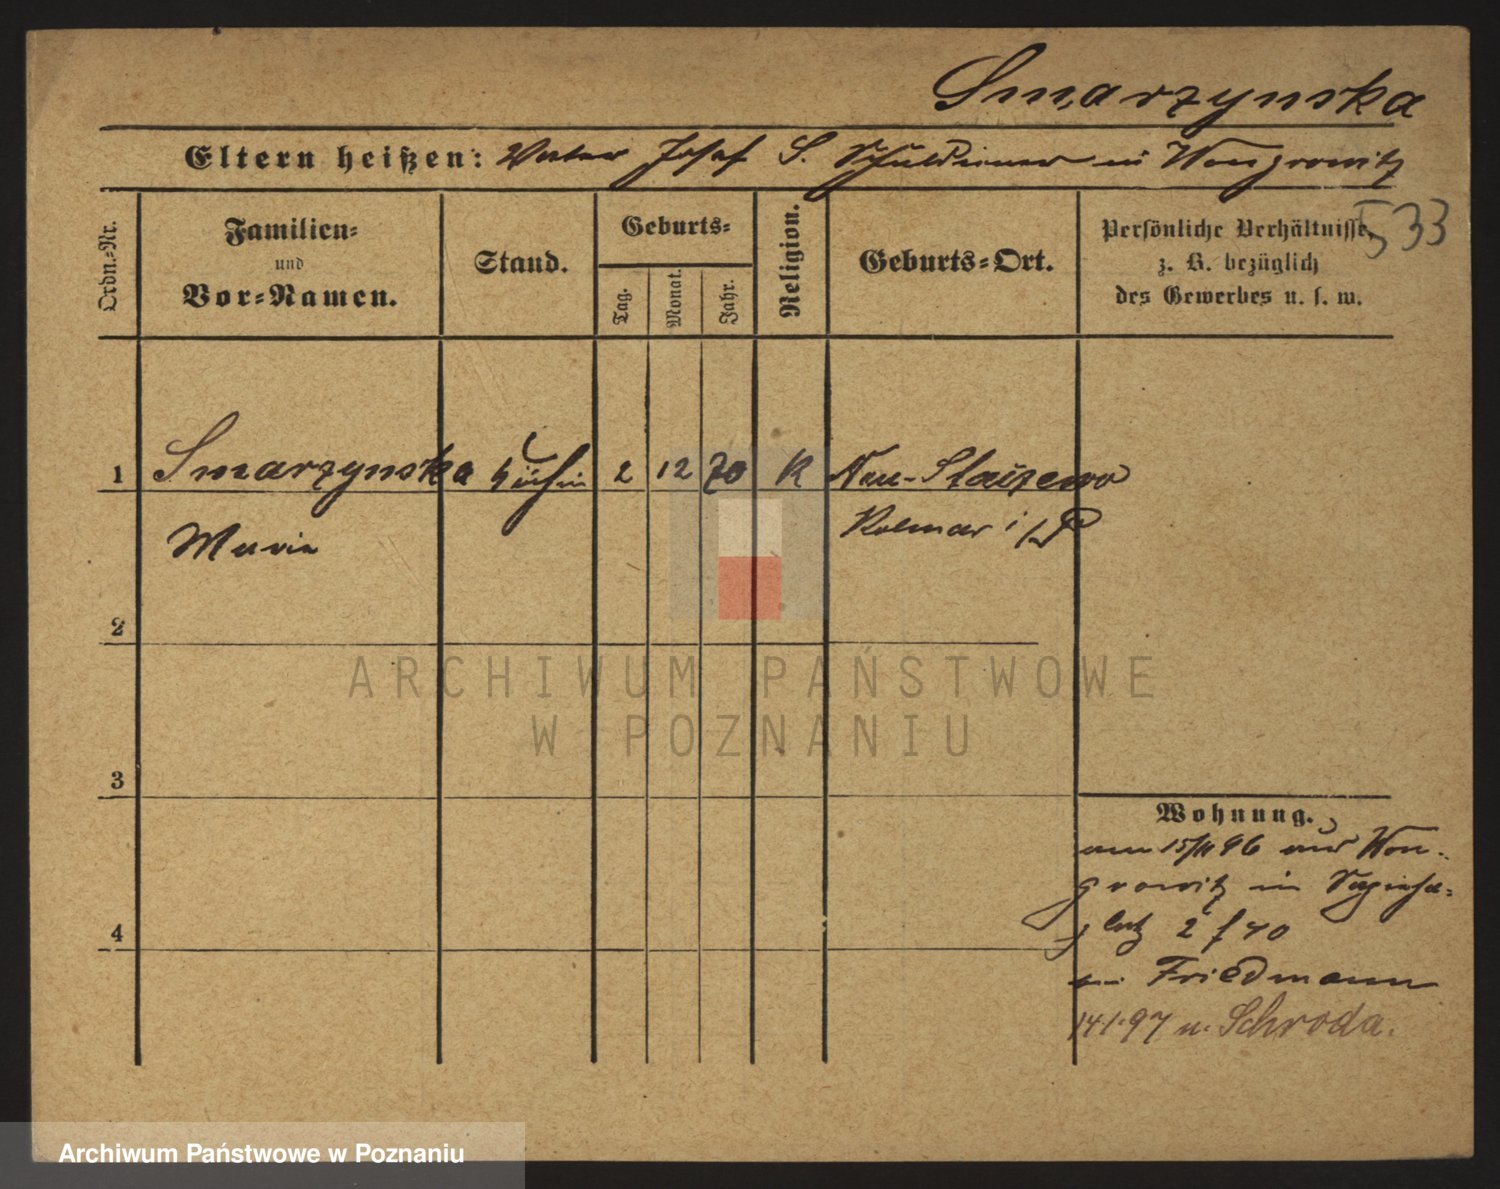 Smarzynska
Eltern heißen: Vater Josef S. Schuldiener in Wongrowitz
533
Ordn.-Nr.
Familien- und Vor-Namen.
Stand.
Geburts-
Tag.
Monat.
Jahr.
Religion.
Geburts-Ort.
Persönliche Verhältnisse,
z. B. bezüglich
des Gewerbes u. s. w.
1 Smarzynska Köchin 2 12 70 K Neu-
Marie Kolmar i/P
2
3
4
Wohnung.
am 15/11 96 aus Won-
growitz in Sapieha-
platz 2 f 40
bei Friedmann
14 1. 97 n. Schroda.
ARCHIWUM PAŃSTWOWE
W POZNANIU
Archiwum Państwowe w Poznaniu